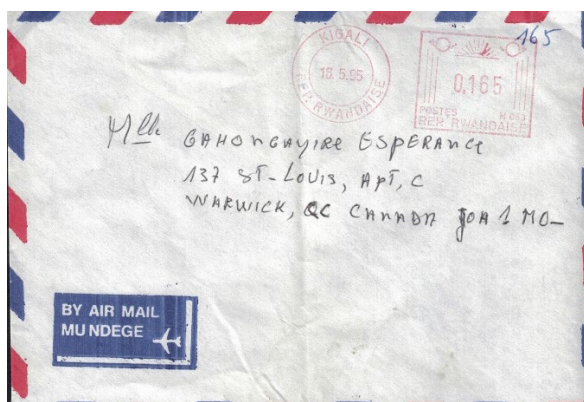 165
KIGALI
18.5.95
REP. RWANDAISE
0,165
POSTES N 063
REP RWANDAISE
Mlle GAHONGAYIRE ESPERANCE
137 ST-LOUIS, APT, C
WARWICK, QC CANADA J0A 1 M0-
BY AIR MAIL
MU NDEGE